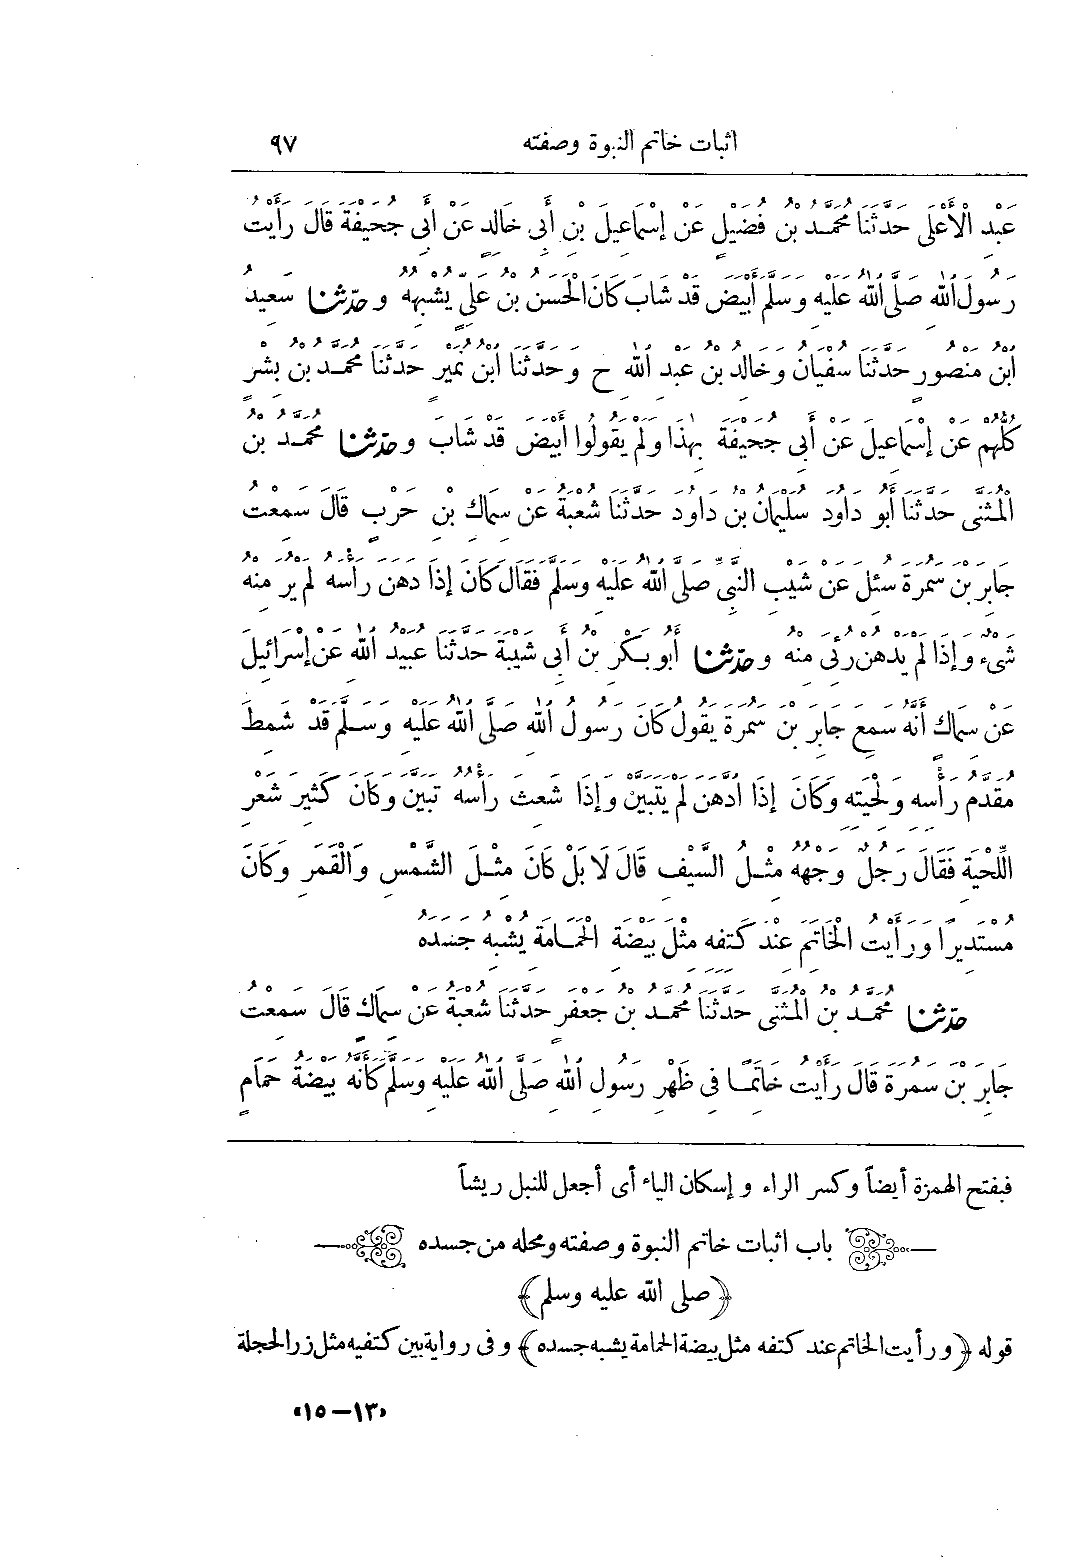 اثبات خاتم النبوة وصفته ٩٧
عَبْدِ الْأَعْلَى حَدَّثَنَا مُحَمَّدُ بْنُ فُضَيْلٍ عَنْ إِسْمَاعِيلَ بْنِ أَبِي خَالِدٍ عَنْ أَبِي جُحَيْفَةَ قَالَ رَأَيْتُ
رَسُولَ اللهِ صَلَّى اللهُ عَلَيْهِ وَسَلَّمَ أَبْيَضَ قَدْ شَابَ كَانَ الْحَسَنُ بْنُ عَلِيٍّ يُشْبِهُهُ وحدثنا سَعِيدُ
ابْنُ مَنْصُورٍ حَدَّثَنَا سُفْيَانُ وَخَالِدُ بْنُ عَبْدِ اللهِ ح وَحَدَّثَنَا ابْنُ نُمَيْرٍ حَدَّثَنَا مُحَمَّدُ بْنُ بِشْرٍ
كُلُّهُمْ عَنْ إِسْمَاعِيلَ عَنْ أَبِي جُحَيْفَةَ بِهٰذَا وَلَمْ يَقُولُوا أَبْيَضَ قَدْ شَابَ وحدثنا مُحَمَّدُ بْنُ
الْمُثَنَّى حَدَّثَنَا أَبُو دَاوُدَ سُلَيْمَانُ بْنُ دَاوُدَ حَدَّثَنَا شُعْبَةُ عَنْ سِمَاكِ بْنِ حَرْبٍ قَالَ سَمِعْتُ
جَابِرَ بْنَ سَمُرَةَ سُئِلَ عَنْ شَيْبِ النَّبِيِّ صَلَّى اللهُ عَلَيْهِ وَسَلَّمَ فَقَالَ كَانَ إِذَا دَهَنَ رَأْسَهُ لَمْ يُرَ مِنْهُ
شَيْءٌ وَإِذَا لَمْ يَدْهُنْ رُئِيَ مِنْهُ وحدثنا أَبُو بَكْرِ بْنُ أَبِي شَيْبَةَ حَدَّثَنَا عُبَيْدُ اللهِ عَنْ إِسْرَائِيلَ
عَنْ سِمَاكٍ أَنَّهُ سَمِعَ جَابِرَ بْنَ سَمُرَةَ يَقُولُ كَانَ رَسُولُ اللهِ صَلَّى اللهُ عَلَيْهِ وَسَلَّمَ قَدْ شَمِطَ
مُقَدَّمُ رَأْسِهِ وَلِحْيَتِهِ وَكَانَ إِذَا ادَّهَنَ لَمْ يَتَبَيَّنْ وَإِذَا شَعِثَ رَأْسُهُ تَبَيَّنَ وَكَانَ كَثِيرَ شَعْرِ
اللِّحْيَةِ فَقَالَ رَجُلٌ وَجْهُهُ مِثْلُ السَّيْفِ قَالَ لَا بَلْ كَانَ مِثْلَ الشَّمْسِ وَالْقَمَرِ وَكَانَ
مُسْتَدِيرًا وَرَأَيْتُ الْخَاتَمَ عِنْدَ كَتِفِهِ مِثْلَ بَيْضَةِ الْحَمَامَةِ يُشْبِهُ جَسَدَهُ
حدثنا مُحَمَّدُ بْنُ الْمُثَنَّى حَدَّثَنَا مُحَمَّدُ بْنُ جَعْفَرٍ حَدَّثَنَا شُعْبَةُ عَنْ سِمَاكٍ قَالَ سَمِعْتُ
جَابِرَ بْنَ سَمُرَةَ قَالَ رَأَيْتُ خَاتَمًا فِي ظَهْرِ رَسُولِ اللهِ صَلَّى اللهُ عَلَيْهِ وَسَلَّمَ كَأَنَّهُ بَيْضَةُ حَمَامٍ
فبفتح الهمزة أيضاً وكسر الراء وإسكان الياء أى أجعل للنبل ريشاً
باب اثبات خاتم النبوة وصفته ومحله من جسده
﴿صلى الله عليه وسلم﴾
قوله ﴿ورأيت الخاتم عند كتفه مثل بيضة الحمامة يشبه جسده﴾ وفى رواية بين كتفيه مثل زر الحجلة
«١٣ – ١٥»